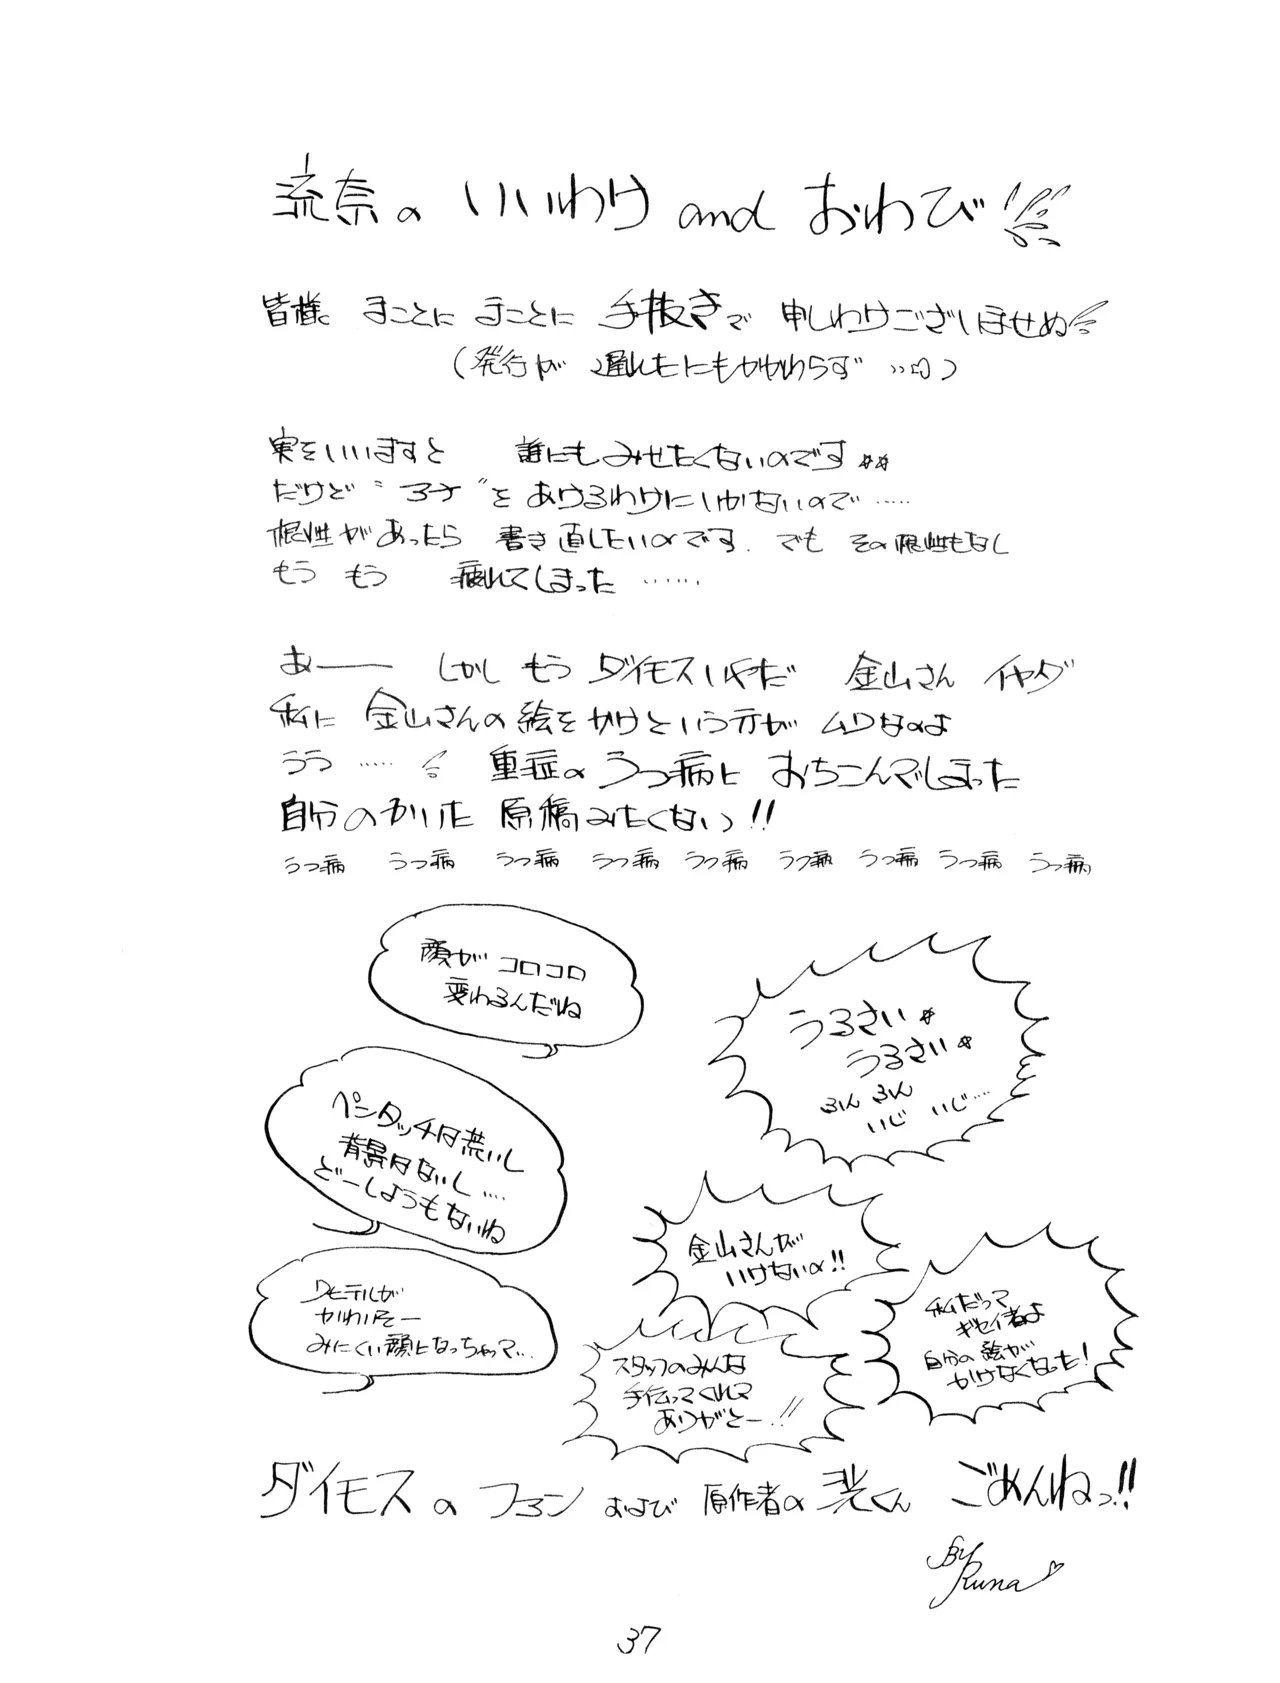 流奈の いいわけ and おわび
皆様 まことに まことに 手抜きで 申しわけございませぬ
(発行が 遅れたにもかかわらず …)
実をいいますと 誰にもみせたくないのです
だけど を あけるわけにいかないので……
根性があったら 書き直したいのです. でも その根性もなし
もう もう 疲れてしまった ……
あー しかし もう ダイモスいやだ 金山さん イヤダ
私に 金山さんの絵をかけという方が ムリなのよ
うう …… 重症の うつ病に おちこんでしまった
自分のかいた 原稿みたくないっ!!
うつ病 うつ病 うつ病 うつ病 うつ病 うつ病 うつ病 うつ病 うつ病
顔が コロコロ
変わるんだね
うるさい
うるさい
ふん ふん
いじ いじ……
ペンタッチは荒いし
背景はないし……
どーしようもないね
金山さんが
いけないの!!
私だって
ギセイ者よ
自分の絵が
かけなくなった!
かわいそー
みにくい顔になっちゃって…
スタッフのみんな
手伝ってくれて
ありがとー!!
ダイモスの ファン および 原作者の くん ごめんねっ!!
By
Runa
37